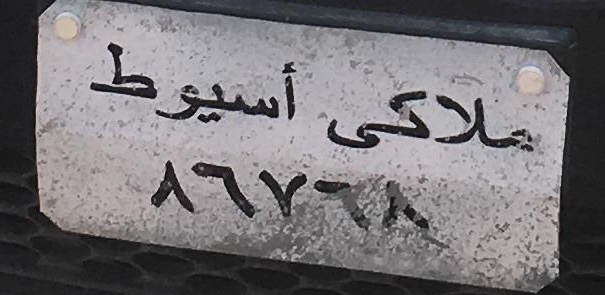 ملاكى أسيوط
٨٦٧٦٨